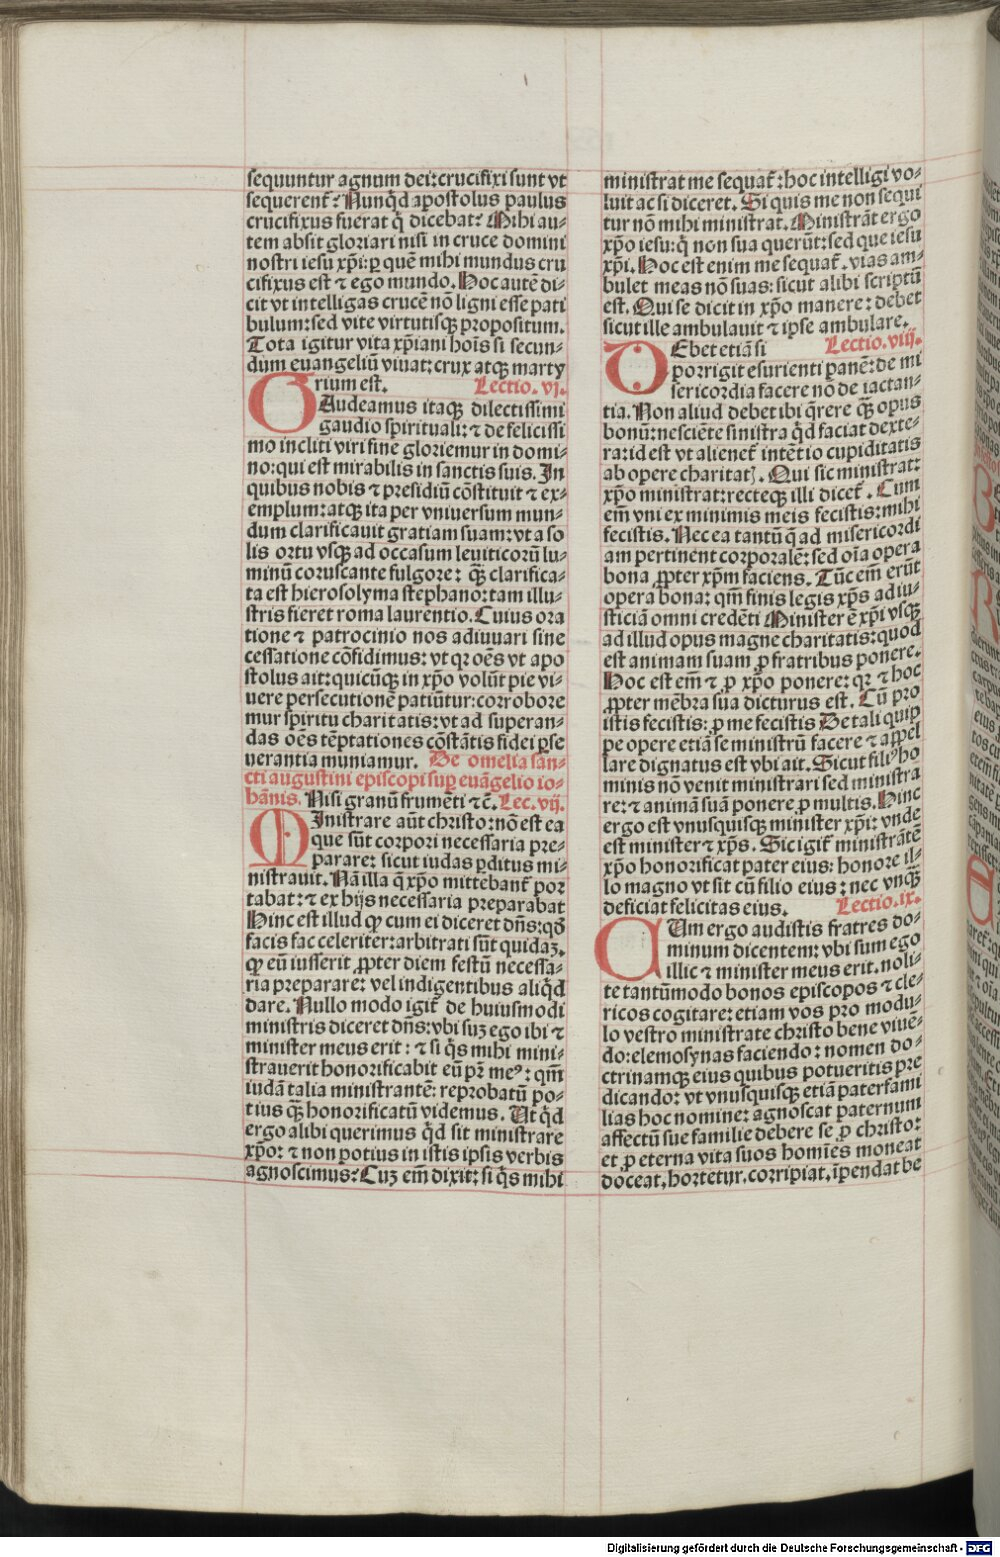 sequuntur agnum dei: crucifixi sunt vt
sequerent᷑? Nunq̇d apostolus paulus
crucifixus fuerat q̇ dicebat? Mihi au⸗
tem absit gloriari nisi in cruce domini
nostri iesu xp̄i: ꝑ quē mihi mundus cru
cifixus est ⁊ ego mundo. Hoc autē di⸗
cit vt intelligas crucē nō ligni esse pati
bulum: sed vite virtutisqꝫ propositum.
Tota igitur vita xp̄iani hoīs si secun⸗
dum euangeliū viuat: crux atqꝫ marty
rium est. Lectio. vj.
GAudeamus itaqꝫ dilectissimi
gaudio spirituali: ⁊ de felicissi
mo incliti viri fine gloriemur in domi⸗
no: qui est mirabilis in sanctis suis. In
quibus nobis ⁊ presidiū cōstituit ⁊ ex⸗
emplum: atqꝫ ita per vniuersum mun⸗
dum clarificauit gratiam suam: vt a so
lis ortu vsqꝫ ad occasum leuiticorū lu⸗
minū coruscante fulgore: qꝫ̄ clarifica⸗
ta est hierosolyma stephano: tam illu⸗
stris fieret roma laurentio. Cuius ora
tione ⁊ patrocinio nos adiuuari sine
cessatione cōfidimus: vt qꝛ oēs vt apo
stolus ait: quicūqꝫ in xp̄o volūt pie vi⸗
uere persecutionē patiūtur: corrobore
mur spiritu charitatis: vt ad superan⸗
das oēs tēptationes cōstātis fidei ꝑse
uerantia muniamur. De omelia san⸗
cti augustini episcopi sup euāgelio io⸗
hānis. Nisi granū frumēti ⁊c̄. Lec. vij.
MInistrare aūt christo: nō est ea
que sūt corpori necessaria pre⸗
parare: sicut iudas ꝑditus mi⸗
nistrauit. Nā illa q̄ xp̄o mittebant᷑ por
tabat: ⁊ ex hijs necessaria preparabat
Hinc est illud ꝙ cum ei diceret dn̄s: qd̄
facis fac celeriter: arbitrati sūt quidaꝫ.
ꝙ eū iusserit ꝓpter diem festū necessa⸗
ria preparare: vel indigentibus aliq̇d
dare. Nullo modo igit᷑ de huiusmodi
ministris diceret dn̄s: vbi suꝫ ego ibi ⁊
minister meus erit: ⁊ si q̇s mihi mini⸗
strauerit honorificabit eū pr̄ meꝰ: qm̄
iudā talia ministrantē: reprobatū po⸗
tius qꝫ̄ honorificatū videmus. Ut q̇d
ergo alibi querimus q̇d sit ministrare
xp̄o: ⁊ non potius in istis ipsis verbis
agnoscimus? Cuꝫ em̄ dixit: si q̇s mihi
ministrat me sequat᷑: hoc intelligi vo⸗
luit ac si diceret. Si quis me non sequi
tur nō mihi ministrat. Ministrāt ergo
xp̄o iesu: q̇ non sua querūt: sed que iesu
xp̄i. Hoc est enim me sequat᷑. vias am⸗
bulet meas nō suas: sicut alibi scriptū
est. Qui se dicit in xp̄o manere: debet
sicut ille ambulauit ⁊ ipse ambulare.
DEbet etiā si Lectio. viij.
porrigit esurienti panē: de mi
sericordia facere nō de iactan⸗
tia. Non aliud debet ibi q̄rere qꝫ̄ opus
bonū: nesciēte sinistra q̇d faciat dexte⸗
ra: id est vt alienet᷑ intētio cupiditatis
ab opere charitatꝭ. Qui sic ministrat:
xp̄o ministrat: recteqꝫ illi dicet᷑. Cum
em̄ vni ex minimis meis fecistis: mihi
fecistis. Nec ea tantū q̄ ad misericordi
am pertinent corporalē: sed oīa opera
bona ꝓpter xp̄m faciens. Tūc em̄ erūt
opera bona: qm̄ finis legis xp̄s ad iu⸗
sticiā omni credēti Minister ē xp̄i vsqꝫ
ad illud opus magne charitatis: quod
est animam suam ꝓ fratribus ponere.
Hoc est em̄ ⁊ ꝓ xp̄o ponere: qꝛ ⁊ hoc
ꝓpter mēbra sua dicturus est. Cū pro
istis fecistis: ꝓ me fecistis De tali quip
pe opere etiā se ministrū facere ⁊ appel
lare dignatus est vbi ait. Sicut filiꝰ ho
minis nō venit ministrari sed ministra
re: ⁊ animā suā ponere ꝓ multis. Hinc
ergo est vnusquisqꝫ minister xp̄i: vnde
est minister ⁊ xp̄s. Sic igit᷑ ministrātē
xp̄o honorificat pater eius: honore il⸗
lo magno vt sit cū filio eius: nec vnqꝫ̄
deficiat felicitas eius. Lectio. ix.
CUm ergo audistis fratres do⸗
minum dicentem: vbi sum ego
illic ⁊ minister meus erit. noli⸗
te tantūmodo bonos episcopos ⁊ cle⸗
ricos cogitare: etiam vos pro modu⸗
lo vestro ministrate christo bene viuē⸗
do: elemosynas faciendo: nomen do⸗
ctrinamqꝫ eius quibus potueritis pre
dicando: vt vnusquisqꝫ etiā paterfami
lias hoc nomine: agnoscat paternum
affectū sue familie debere se ꝓ christo:
et ꝓ eterna vita suos homīes moneat
doceat, hortetur, corripiat, īpendat be
Digitalisierung gefördert durch die Deutsche Forschungsgemeinschaft - DFG